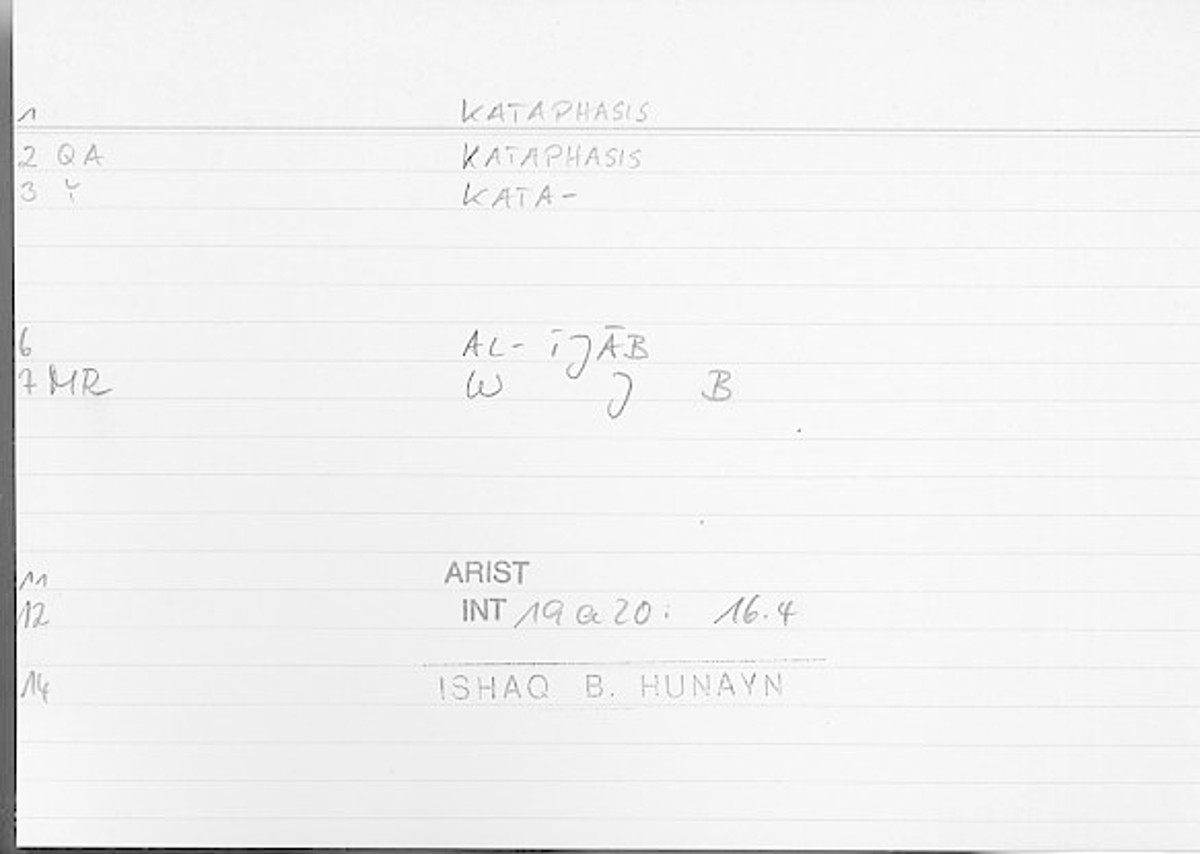 1 KATAPHASIS
2 QA KATAPHASIS
3 Y KATA-
6 AL-ĪJĀB
7 MR W J B
11 ARIST
12 INT 19a20: 16.4
14 ISHAQ B. HUNAYN